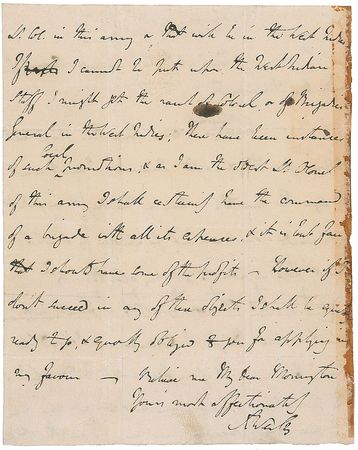 Lt. Col. in this army & that will be in the West Indies
If I cannot be put upon the West Indian
Staff I might get the rank of Colonel, or of Brigadier
General in the West Indies; There have been instances
of such local promotions, & as I am the oldest Lt. Colonel
of this army I shall certainly have the command
of a brigade with all its expences, & it is but fair
that I should have some of the profits — However if I
don't succeed in any of these objects I shall be quite
ready to go & equally obliged to you for applying in
my favour — Believe me My dear Mornington
Yours most affectionately
A Wesley